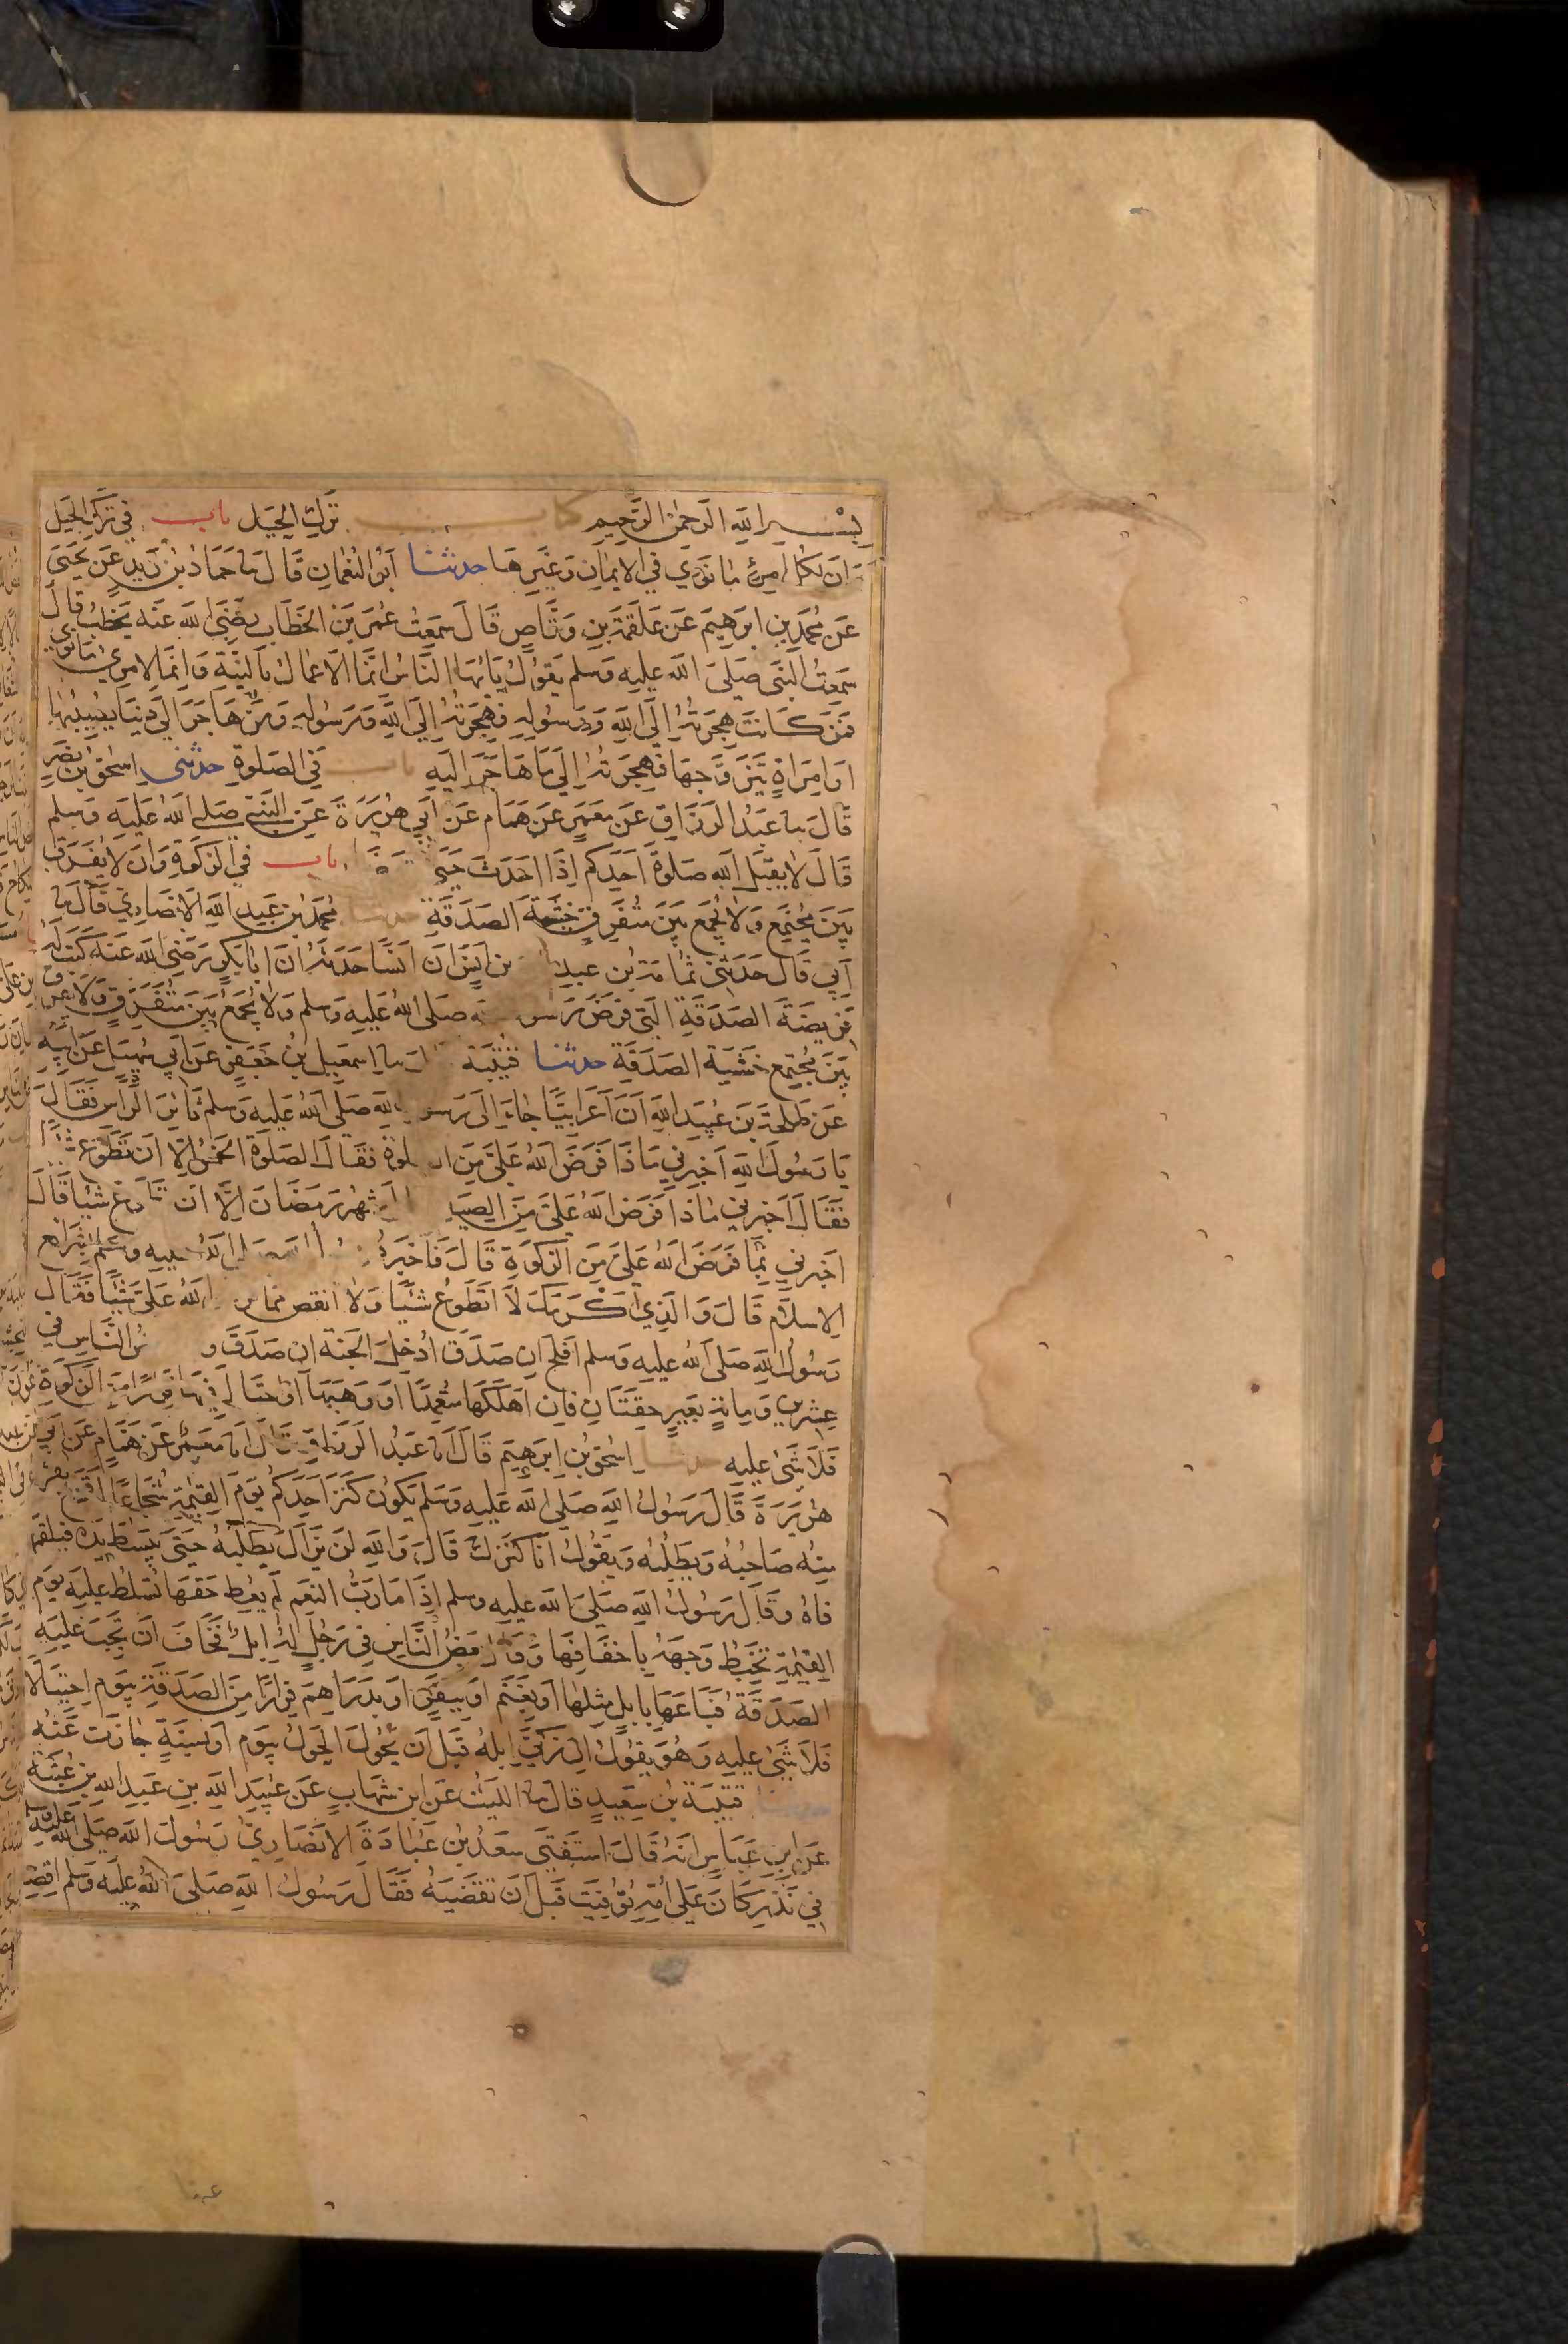 بسم الله الرحمن الرحيم كتاب ترك الحيل باب في ترك الحيل
وان لكل امرئ ما نوى في الايمان وغيرها حدثنا ابو النعمان قال نا حماد بن زيد عن يحيى
عن محمد بن ابرهيم عن علقمة بن وقاص قال سمعت عمر بن الخطاب رضي الله عنه يخطب قال
سمعت النبي صلى الله عليه وسلم يقول يايها الناس انما الاعمال بالنية وانما لامرئ ما نوى
فمن كانت هجرته الى الله ورسوله فهجرته الى الله ورسوله ومن هاجر الى دنيا يصيبها
او امراة يتزوجها فهجرته الى ما هاجر اليه باب في الصلوة حدثني اسحق بن نصر
قال نا عبد الرزاق عن معمر عن همام عن ابي هريرة عن النبي صلى الله عليه وسلم
قال لا يقبل الله صلوة احدكم اذا احدث حتى باب في الزكوة وان لا يفرق
بين مجتمع ولا يجمع بين متفرق خشية الصدقة حدثنا محمد بن عبد الله الانصاري قال نا
ابي قال حدثني ثمامة بن عبد بن انس ان انسا حدثه ان ابا بكر رضي الله عنه كتب له
فريضة الصدقة التي فرض رسو صلى الله عليه وسلم ولا يجمع بين متفرق ولا يفرق
بين مجتمع خشية الصدقة حدثنا قتيبة نا اسمعيل بن جعفر عن ابي سهيل عن ابيه
عن طلحة بن عبيد الله ان اعرابيا جاء الى رسو الله صلى الله عليه وسلم ثائر الراس فقال
يا رسول الله اخبرني ماذا فرض الله علي من الـ لوة فقال الصلوة الخمس الا ان تطوع شيئا
فقال اخبرني ماذا فرض الله علي من الصيا شهر رمضان الا ان تطوع شيئا قال
اخبرني بما فرض الله علي من الزكوة قال فاخبره صلى الله عليه وسلم شرائع
الاسلام قال والذي اكرمك لا اتطوع شيئا ولا انقص مما الله علي شيئا فقال
رسول الله صلى الله عليه وسلم افلح ان صدق ادخل الجنة ان صدق و الناس في
عشرين ومائة بعير حقتان فان اهلكها متعمدا او وهبها او احتال فيها فرارا من الزكوة
فلا شئ عليه حدثنا اسحق بن ابرهيم قال انا عبد الرزاق قال انا معمر عن همام عن ابي
هريرة قال رسول الله صلى الله عليه وسلم يكون كنز احدكم يوم القيمة شجاعا اقرع يفر
منه صاحبه ويطلبه ويقول انا كنزك قال والله لن يزال يطلبه حتى يبسط يده فيلقمها
فاه وقال رسول الله صلى الله عليه وسلم اذا ما رب النعم لم يعط حقها تسلط عليه يوم
القيمة تخبط وجهه باخفافها وقال بعض الناس في رجل له ابل فخاف ان تجب عليه
الصدقة فباعها بابل مثلها او بغنم او ببقر او بدراهم فرارا من الصدقة بيوم احتيالا
فلا شئ عليه وهو يقول ان زكى ابله قبل ان يحول الحول بيوم او بسنة جازت عنه
حدثنا قتيبة بن سعيد قال نا الليث عن ابن شهاب عن عبيد الله بن عبد الله بن عتبة
عن ابن عباس انه قال استفتى سعد بن عبادة الانصاري رسول الله صلى الله عليه وسلم
في نذر كان على امه توفيت قبل ان تقضيه فقال رسول الله صلى الله عليه وسلم اقضه